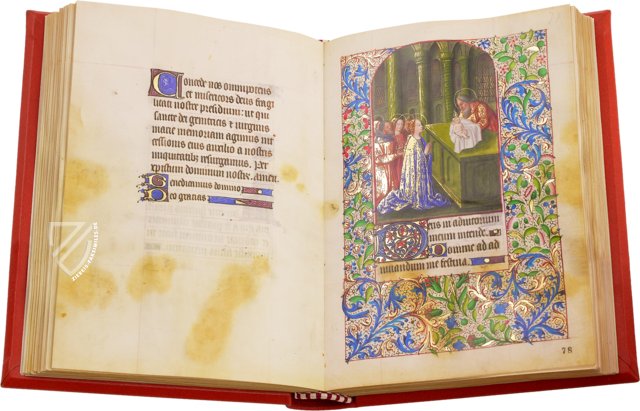 Concede nos omnipotens
et misericors deus fragi
litati nostre presidium: ut qui
sancte dei genitricis et virginis
marie memoriam agimus in
cessionis eius auxilio a nostris
iniquitatibus resurgamus. Per
xpistum dominum nostrum. Amen.
Benedicamus domino
Deo gratias
Deus in adiutorium
meum intende.
Domine ad ad
iuuandum me festina.
78
ZIEREIS-FAKSIMILES.DE